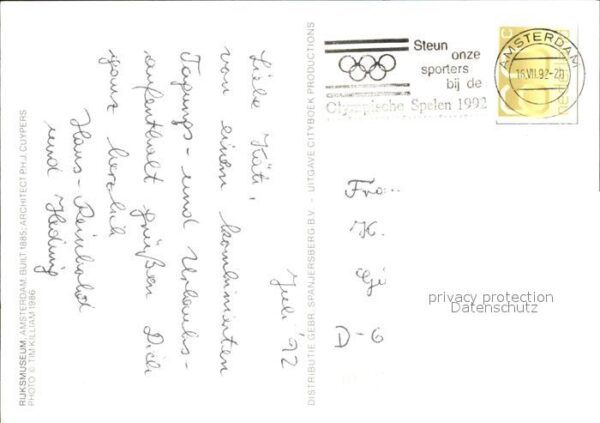 Juli '92
Liebe Käti,
von einem kombinierten
Tagungs- und Urlaubs-
aufenthalt grüßen Dich
ganz herzlich
Hans-Reinhold
und Hedwig
RIJKSMUSEUM, AMSTERDAM, BUILT 1885; ARCHITECT P.H.J. CUYPERS
PHOTO © TIM KILLIAM 1986
DISTRIBUTIE GEBR. SPANJERSBERG B.V. - UITGAVE CITYBOEK PRODUCTIONS
Steun
onze
sporters
bij de
Olympische Spelen 1992
AMSTERDAM
16.VII.92-20
Frau
K.
D-6
privacy protection
Datenschutz